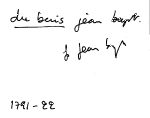 du buis jean bapt.
f jean bap
1791-22